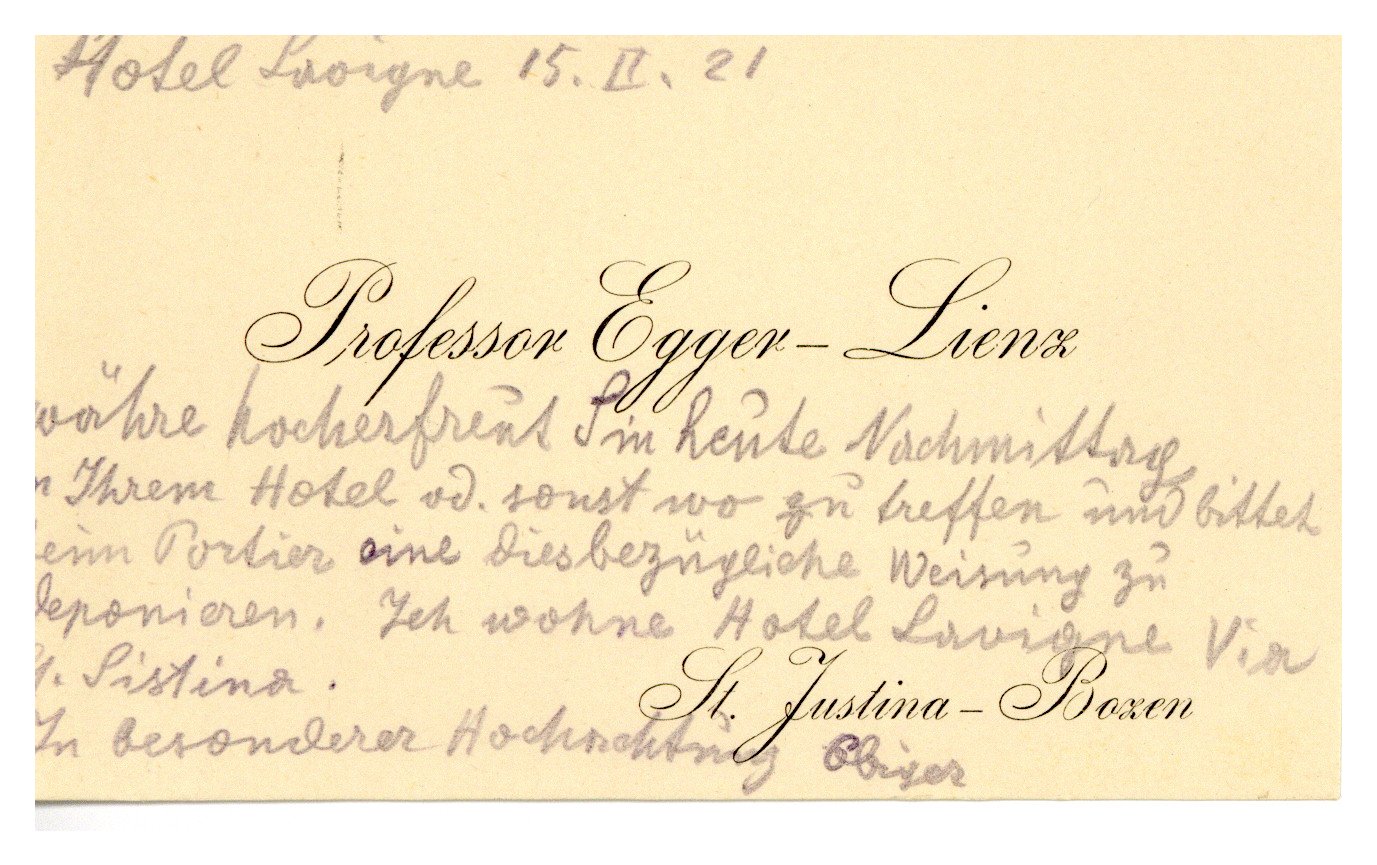 Hotel Lavigne 15. II. 21
Professor Egger-Lienz
währe hocherfreut Sie heute Nachmittag
n Ihrem Hotel od. sonst wo zu treffen und bittet
eim Portier eine diesbezügliche Weisung zu
deponieren. Ich wohne Hotel Lavigne Via
St. Sistina.
St. Justina-Bozen
In besonderer Hochachtung Obiger